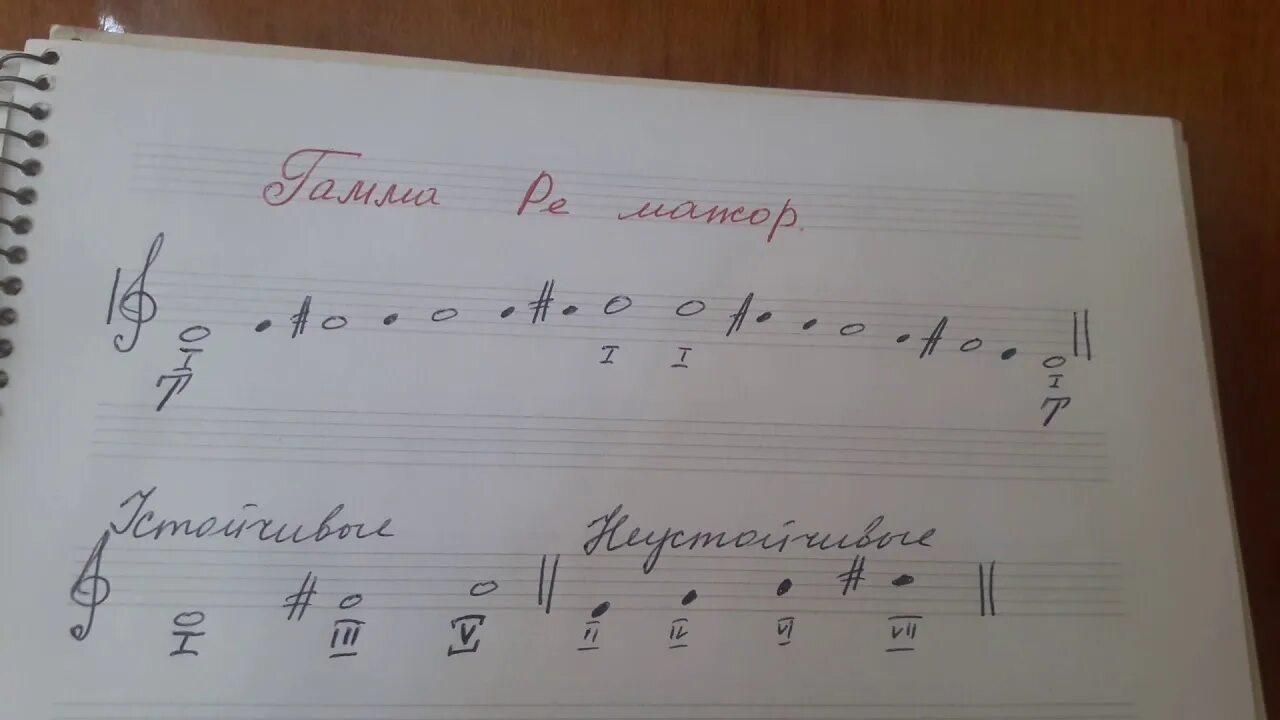 Гамма Ре мажор.
I I I I
T T
Устойчивые Неустойчивые
I III V II IV VI VII